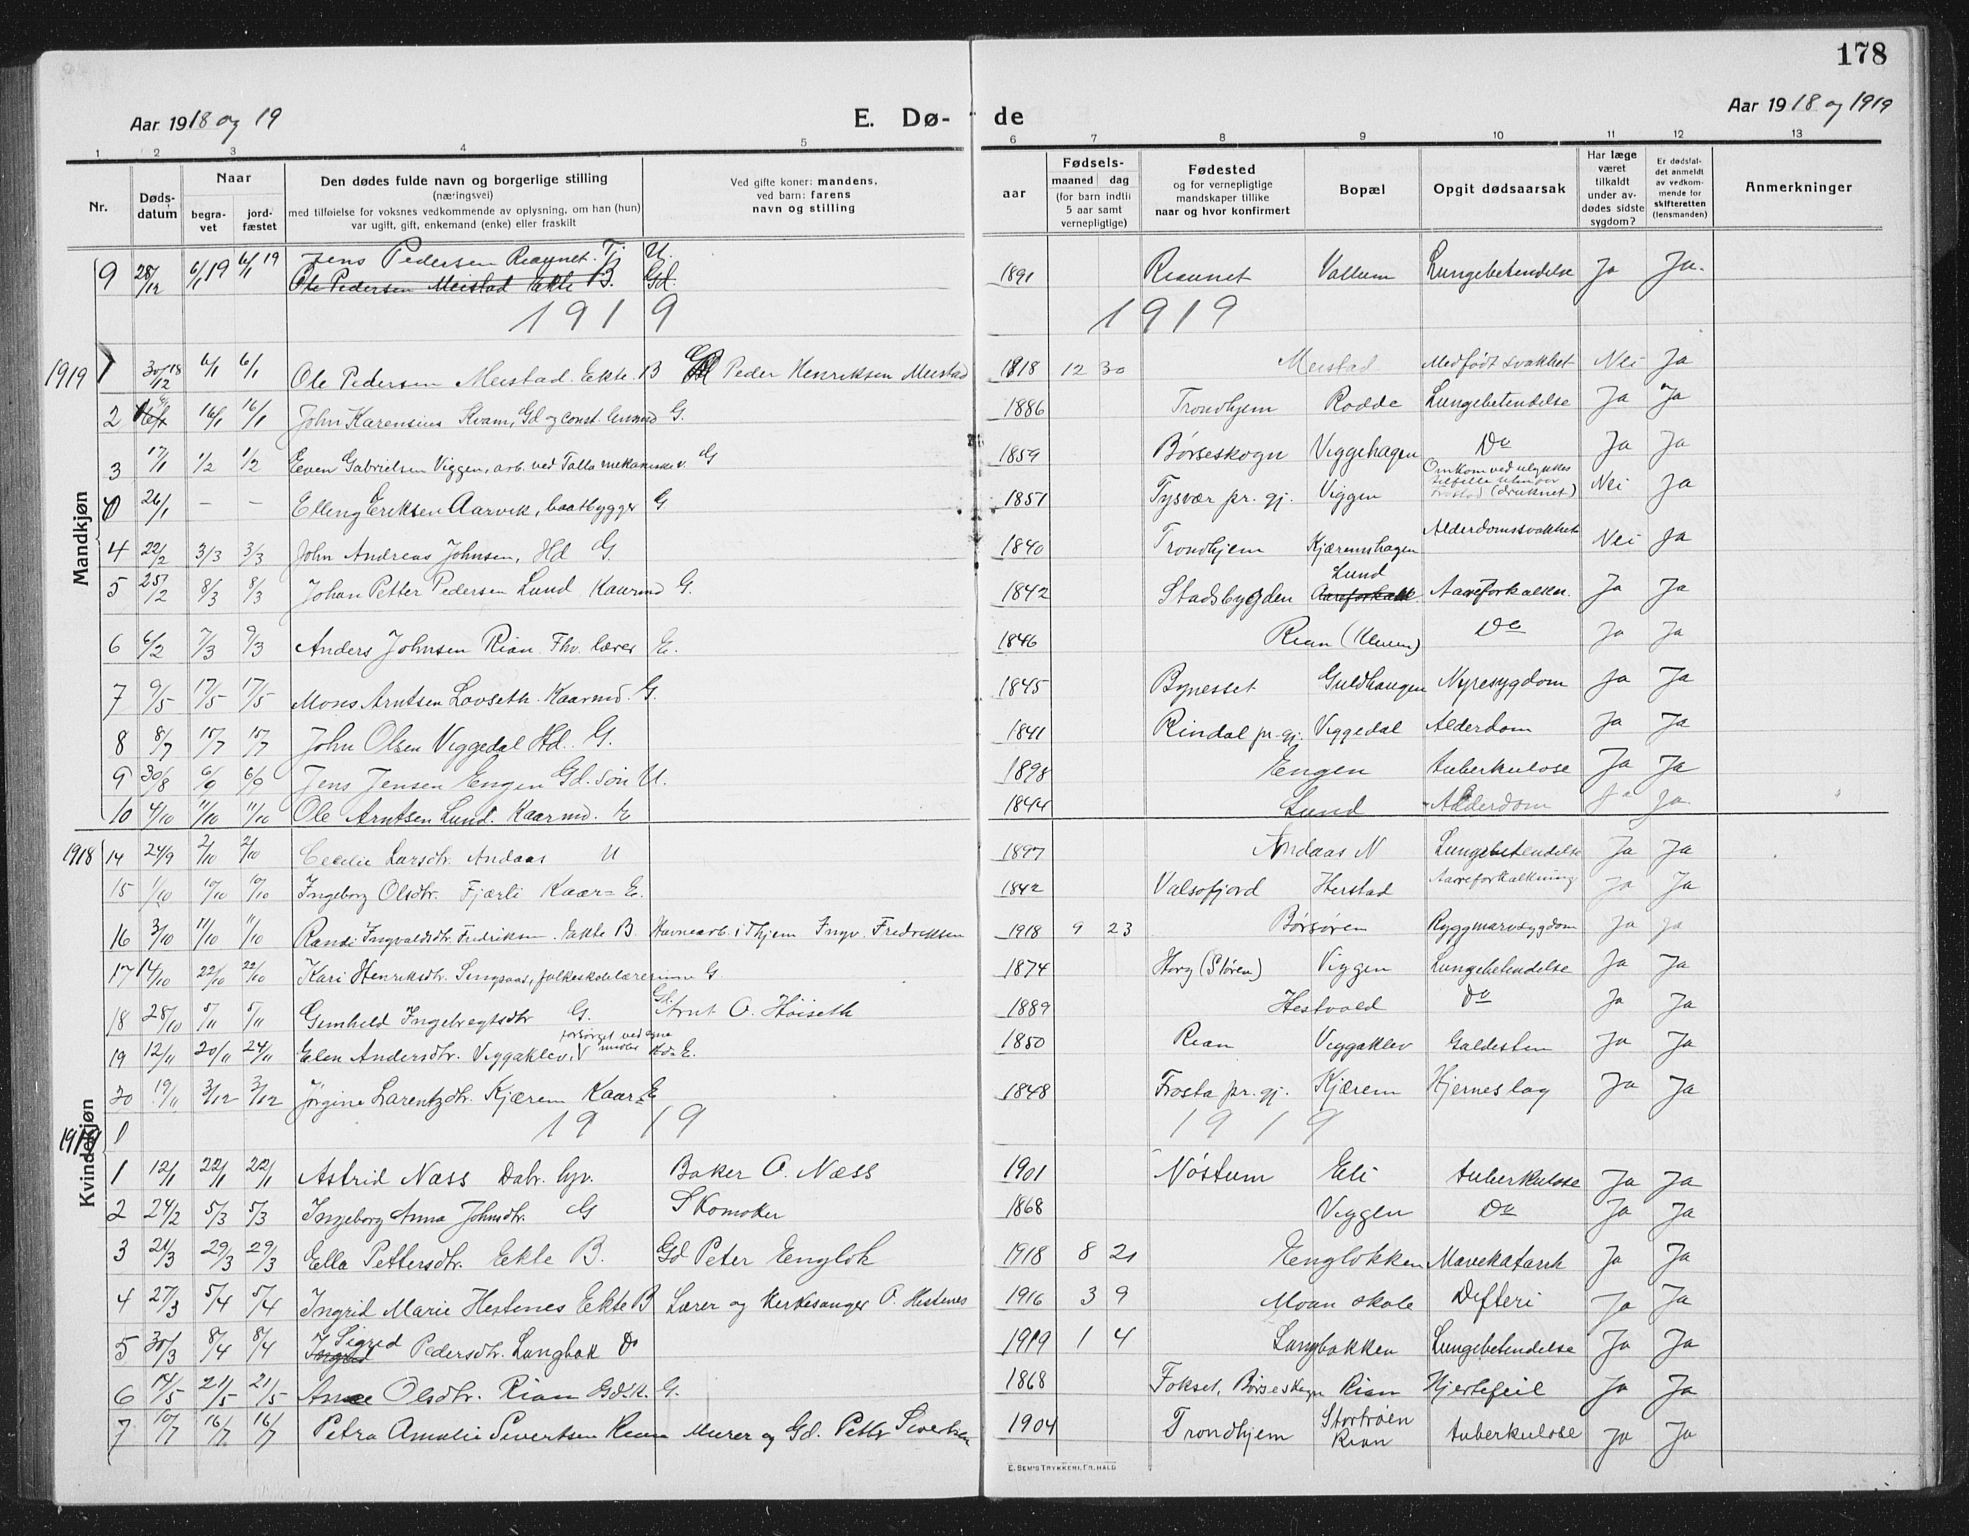 178
Aar 1918 og 19
E. Dø- de
Aar 1918 og 1919
1 2 3 4 5 6 7 8 9 10 11 12 13
Nr.
Døds-
datum
Naar
begra-
vet
jord-
fæstet
Den dødes fulde navn og borgerlige stilling
(næringsvei)
med tilføielse for voksnes vedkommende av oplysning, om han (hun)
var ugift, gift, enkemand (enke) eller fraskilt
Ved gifte koner: mandens,
ved barn: farens
navn og stilling
Fødsels-
aar
maaned dag
(for barn indtil
5 aar samt
vernepligtige)
Fødested
og for vernepligtige
mandskaper tillike
naar og hvor konfirmert
Bopæl
Opgit dødsaarsak
Har læge
været
tilkaldt
under av-
dødes sidste
sygdom?
Er dødsfal-
det anmeldt
av vedkom-
mende for
skifteretten
(lensmanden)
Anmerkninger
Mandkjøn
9 28/12 6/1 19 6/1 19 Jens Pedersen Riaunet. Tj. U. 1891 Riaunet Vallum Lungebetendelse Ja Ja.
Ole Pedersen Meistad ekte B. Gd.
1919 1919
1919 1 30/12 18 6/1 6/1 Ole Pedersen Meistad. Ekte. B Peder Henriksen Meistad 1918 12 30 Meistad Medfødt svakhet Nei Ja
2 16/1 16/1 John Karensius Kvam, Gd og const. lensmd G. 1886 Trondhjem Rodde Lungebetendelse Ja Ja
3 17/1 1/2 1/2 Even Gabrielsen Viggen, arb. ved Talla mekaniske v. G 1859 Børseskogn Viggehagen Do Ja Ja
0 26/1 — — Elling Eriksen Aarvik, baatbygger G 1851 Tysvær pr. gj. Viggen Omkom ved ulykkes
tilfælde utenfor
(druknet) Nei Ja
4 22/2 3/3 3/3 John Andreas Johnsen, Hd G. 1840 Trondhjem Kjæremshagen Alderdomssvakhet Nei Ja
5 25/2 8/3 8/3 Johan Petter Pedersen Lund Kaarmd G. 1842 Stadsbygden Lund Aareforkalkn. Ja Ja
6 6/2 7/3 9/3 Anders Johnsen Rian Fhv. lærer E. 1846 Rian (Kleven) Do Ja Ja
7 9/5 17/5 17/5 Mons Arntsen Lovseth. Kaarmd. G. 1845 Bynesset Guldhaugen Nyresygdom Ja Ja
8 8/7 15/7 15/7 John Olsen Viggedal Hd. G. 1841 Rindal pr. gj. Viggedal Alderdom Ja Ja
9 30/8 6/9 6/9 Jens Jensen Engen Gd. søn U. 1898 Engen Tuberkulose Ja Ja
10 4/10 11/10 11/10 Ole Arntsen Lund. Kaarmd. E 1844 Lund Alderdom Ja Ja
Kvindekjøn
1918 14 24/9 2/10 2/10 Cecilie Larsdtr. Andaas U 1897 Andaas N Lungebetendelse Ja Ja
15 1/10 10/10 10/10 Ingeborg Olsdtr. Fjærli Kaar= E. 1842 Valsøfjord Herstad Aareforkalkning Ja Ja
16 3/10 11/10 11/10 Randi Ingvaldsdtr. Fredriksen. Ekte B Havnearb. i Thjem Ingv. Fredriksen 1918 9 23 Børsøren Ryggmarvsygdom Ja Ja
17 14/10 22/10 22/10 Kari Henriksdtr. Singsaas, folkeskolelærerinne G 1874 Horg (Støren) Viggen Lungebetendelse Ja Ja
18 28/10 5/11 5/11 Gunhild Ingebregtsdtr G. Gd. Arnt O. Høiseth 1889 Hestvold Do Ja Ja
19 12/11 20/11 24/11 Elen Andersdtr. Viggaklev, forsørget ved egne
midler Hd. E. 1850 Rian Viggaklev Galdesten Ja Ja
20 19/11 3/12 3/12 Jørgine Larentzdtr. Kjærem Kaar= E 1848 Frosta pr. gj. Kjærem Hjerneslag Ja Ja
1919 1919
1919
1 12/1 22/1 22/1 Astrid Næss Dabr. hjv. Baker O. Næss 1901 Nøstum Eli Tuberkulose Ja Ja
2 24/2 5/3 5/3 Ingeborg Anna Johnsdtr. G Skomaker 1868 Viggen Do Ja Ja
3 21/3 29/3 29/3 Ella Pettersdtr. Ekte B. Gd Peter Engløk 1918 8 21 Engløkken Mavekatarrh Ja Ja
4 27/3 5/4 5/4 Ingrid Marie Hestenes Ekte B Lærer og Kirkesanger O. Hestenes 1916 3 9 Moan skole Difteri Ja Ja
5 30/3 8/4 8/4 Sigrid Pedersdtr. Langbak Do 1919 1 4 Langbakken Lungebetendelse Ja Ja
6 14/5 21/5 21/5 Ane Olsdtr. Rian Gd.k. G. 1868 Fokset, Børseskogn Rian Hjertefeil Ja Ja
7 10/7 16/7 16/7 Petra Amalie Sivertsen Rian Murer og Gd. Petter Sivertsen 1904 Trondhjem Stortrøen
Rian Tuberkulose Ja Ja
E. SEM'S TRYKKERI, FR.HALD